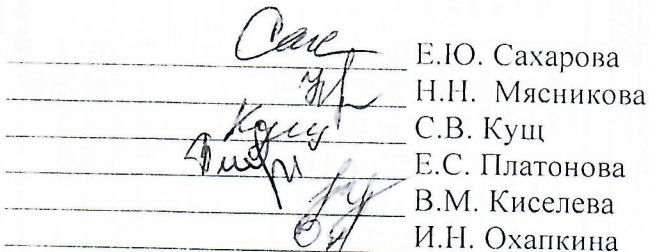 Е.Ю. Сахарова
Н.Н. Мясникова
С.В. Кущ
Е.С. Платонова
В.М. Киселева
И.Н. Охапкина